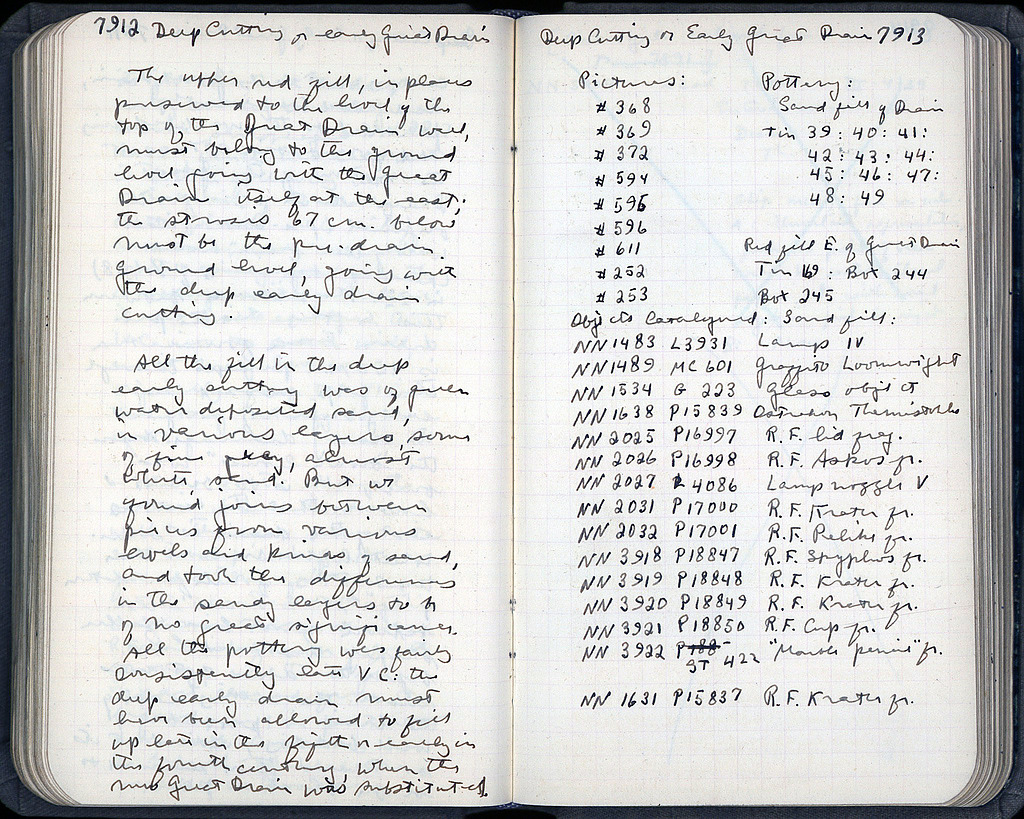 7912 Deep Cutting or early Great Drain
The upper red fill, in places
preserved to the level of the
top of the Great Drain wall,
must belong to the ground
level going with the Great
Drain itself at the east;
the strosis 67 cm. below
must be the pre-drain
ground level, going with
the deep early drain
cutting.
All the fill in the deep
early cutting was of green
water deposited sand,
in various layers, some
of fine grey, almost
white sand. But we
found joins between
pieces from various
levels and kinds of sand,
and took the differences
in the sandy layers to be
of no great significance.
All the pottery was fairly
consistently late V C: the
deep early drain must
have been allowed to fill
up late in the fifth or early in
the fourth century, when the
new Great Drain was substituted.
Deep Cutting or Early Great Drain 7913
Pictures:
# 368
# 369
# 372
# 594
# 595
# 596
# 611
# 252
# 253
Pottery:
Sand fill of Drain
Tin 39: 40: 41:
42: 43: 44:
45: 46: 47:
48: 49
Red fill E. of Great Drain
Tin 169: Box 244
Box 245
Objects Catalogued: Sand fill:
NN 1483 L3931 Lamp IV
NN 1489 MC 601 Graffito Loomweight
NN 1534 G 223 Glass object
NN 1638 P15839 Ostrakon Themistokles
NN 2025 P16997 R.F. lid frag.
NN 2026 P16998 R.F. Askos fr.
NN 2027 L 4086 Lamp nozzle V
NN 2031 P17000 R.F. Krater fr.
NN 2032 P17001 R.F. Pelike fr.
NN 3918 P18847 R.F. Skyphos fr.
NN 3919 P18848 R.F. Krater fr.
NN 3920 P18849 R.F. Krater fr.
NN 3921 P18850 R.F. Cup fr.
NN 3922 ST 422 "Marble pennis" fr.
NN 1631 P15837 R.F. Krater fr.